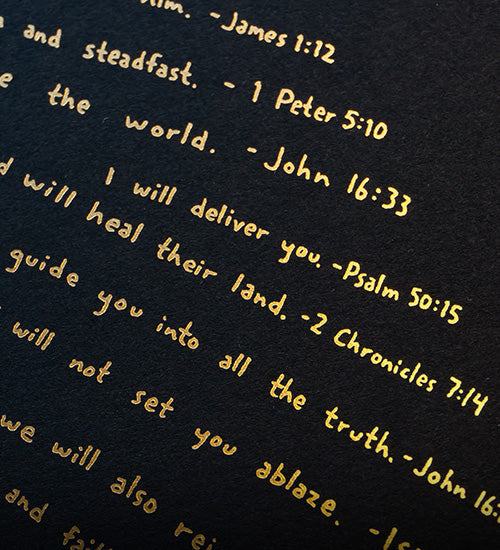 him. -James 1:12
and steadfast. - 1 Peter 5:10
the world. - John 16:33
I will deliver you. -Psalm 50:15
will heal their land. -2 Chronicles 7:14
guide you into all the truth. -John 16:
will not set you ablaze. -Is
we will also rei
and fai